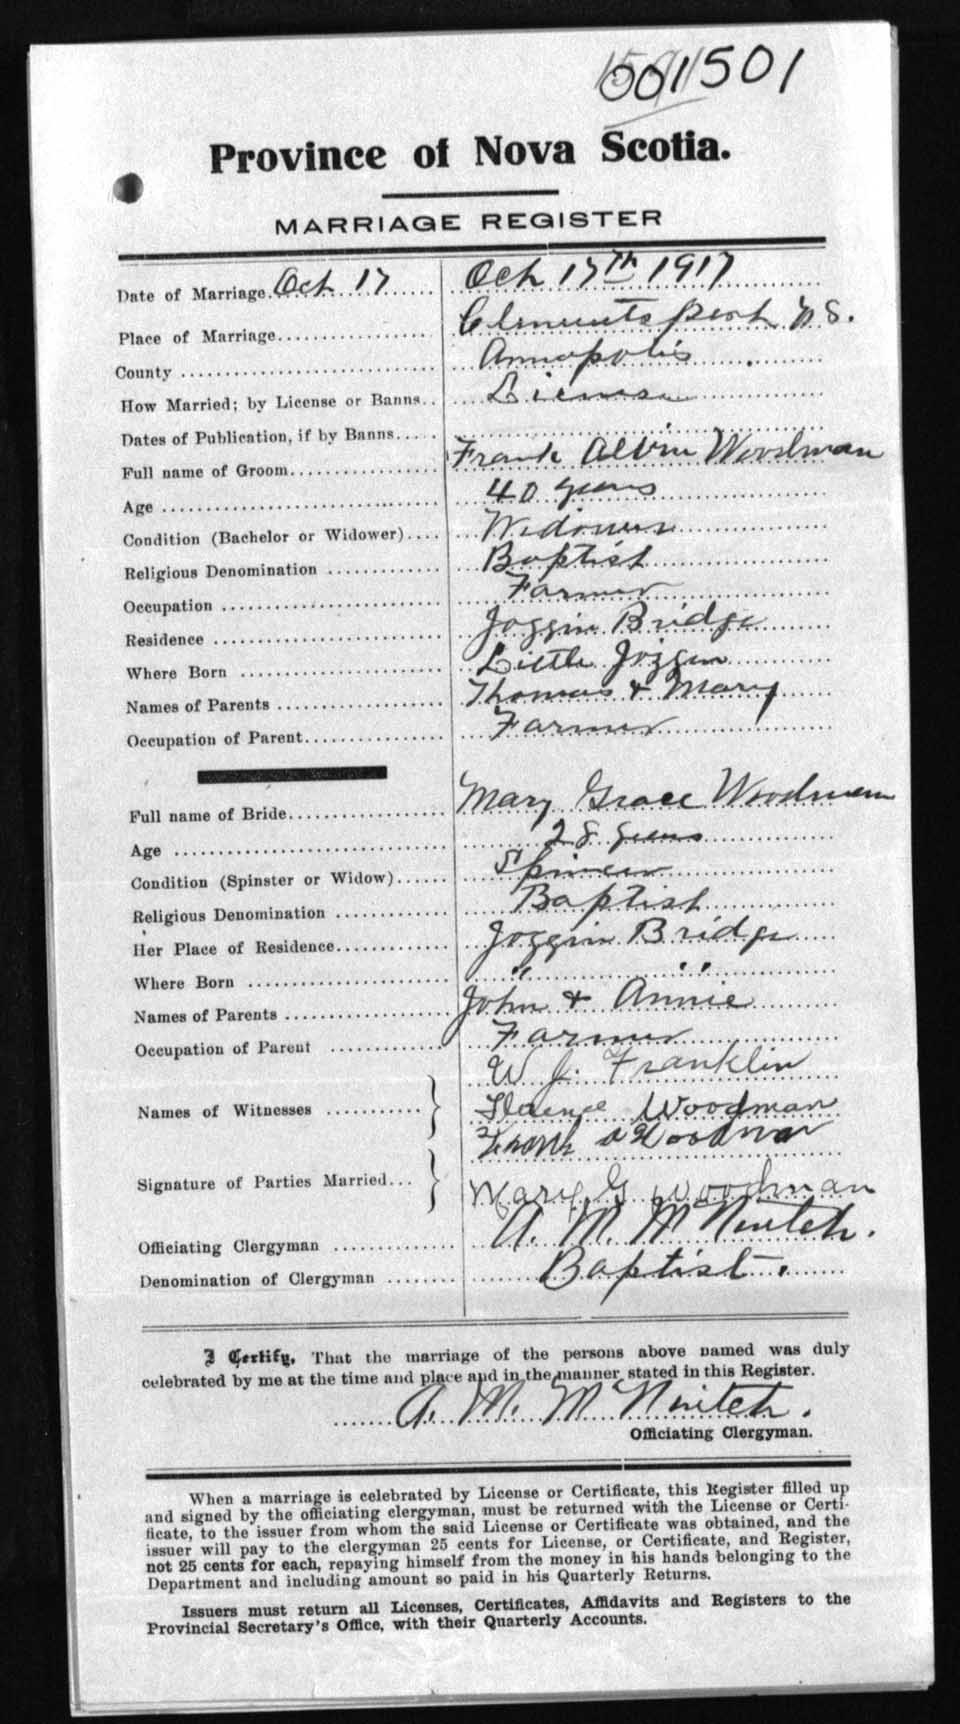 501501
Province of Nova Scotia.
MARRIAGE REGISTER
Date of Marriage Oct 17 Oct 17th 1917
Place of Marriage Clementsport N S.
County Annapolis
How Married; by License or Banns License
Dates of Publication, if by Banns
Full name of Groom Frank Alvin Woodman
Age 40 years
Condition (Bachelor or Widower) Widower
Religious Denomination Baptist
Occupation Farmer
Residence Joggin Bridge
Where Born Little Joggin
Names of Parents Thomas & Mary
Occupation of Parent Farmer
Full name of Bride Mary Grace Woodman
Age 28 years
Condition (Spinster or Widow)
Religious Denomination Baptist
Her Place of Residence Joggin Bridge
Where Born " "
Names of Parents John & Annie
Occupation of Parent Farmer
W J. Franklin
Names of Witnesses Woodman
Frank A Woodman
Signature of Parties Married Mary G Woodman
Officiating Clergyman A. M. McNintch.
Denomination of Clergyman Baptist.
I Certify, That the marriage of the persons above named was duly
celebrated by me at the time and place and in the manner stated in this Register.
A. M. McNintch.
Officiating Clergyman.
When a marriage is celebrated by License or Certificate, this Register filled up
and signed by the officiating clergyman, must be returned with the License or Certi-
ficate, to the issuer from whom the said License or Certificate was obtained, and the
issuer will pay to the clergyman 25 cents for License, or Certificate, and Register,
not 25 cents for each, repaying himself from the money in his hands belonging to the
Department and including amount so paid in his Quarterly Returns.
Issuers must return all Licenses, Certificates, Affidavits and Registers to the
Provincial Secretary's Office, with their Quarterly Accounts.